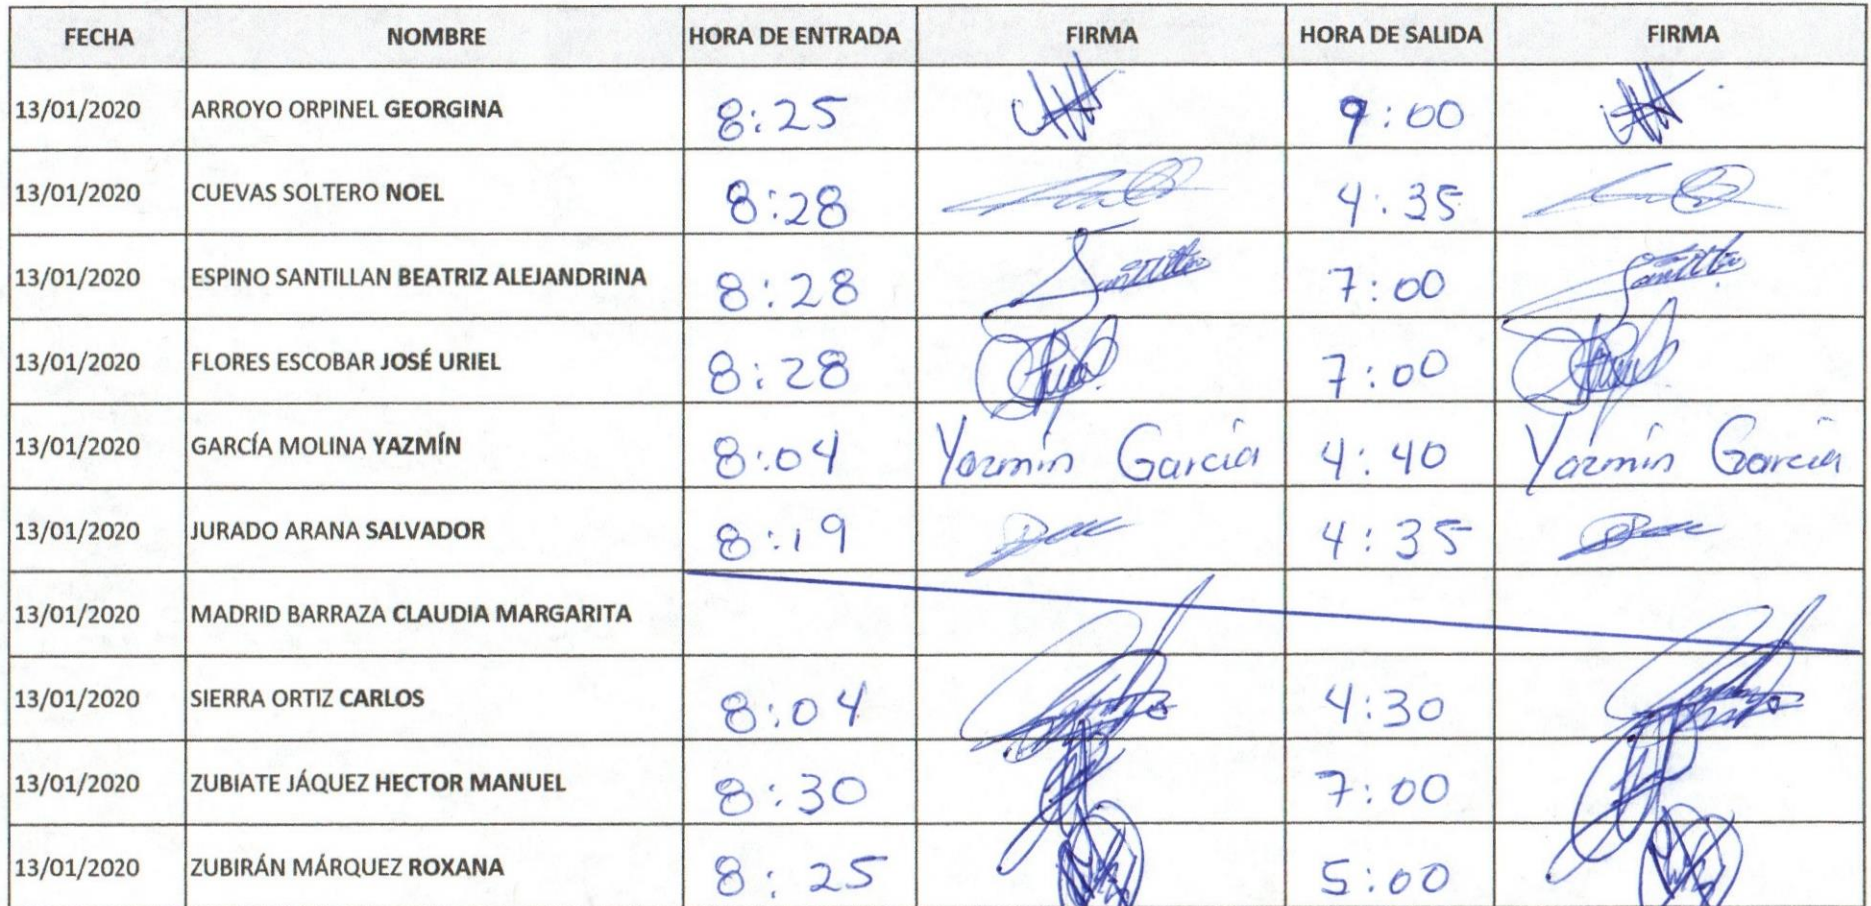 FECHA NOMBRE HORA DE ENTRADA FIRMA HORA DE SALIDA FIRMA
13/01/2020 ARROYO ORPINEL GEORGINA 8:25 9:00
13/01/2020 CUEVAS SOLTERO NOEL 8:28 4:35
13/01/2020 ESPINO SANTILLAN BEATRIZ ALEJANDRINA 8:28 7:00
13/01/2020 FLORES ESCOBAR JOSÉ URIEL 8:28 7:00
13/01/2020 GARCÍA MOLINA YAZMÍN 8:04 Yazmín García 4:40 Yazmín García
13/01/2020 JURADO ARANA SALVADOR 8:19 4:35
13/01/2020 MADRID BARRAZA CLAUDIA MARGARITA
13/01/2020 SIERRA ORTIZ CARLOS 8:04 4:30
13/01/2020 ZUBIATE JÁQUEZ HECTOR MANUEL 8:30 7:00
13/01/2020 ZUBIRÁN MÁRQUEZ ROXANA 8:25 5:00